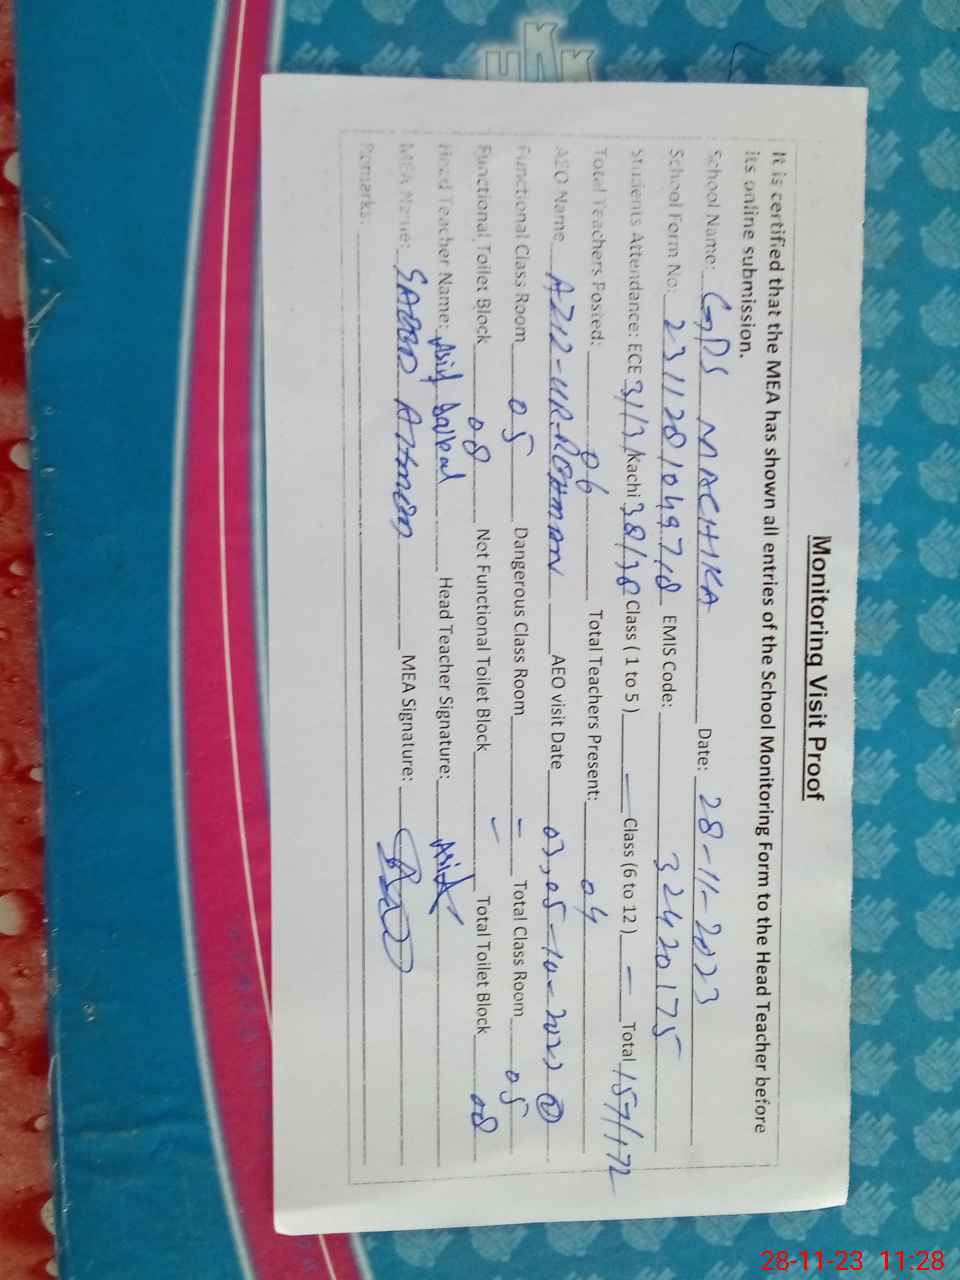 Monitoring Visit Proof
It is certified that the MEA has shown all entries of the School Monitoring Form to the Head Teacher before
its online submission.
School Name: GPS MACHIKA Date: 28-11-2023
School Form No: EMIS Code: 32420175
Students Attendance: ECE Kachi 38/38 Class ( 1 to 5 ) — Class (6 to 12 ) — Total 157/172
Total Teachers Posted: 06 Total Teachers Present: 04
AEO Name AZIZ-UR-REHMAN AEO visit Date
Functional Class Room 05 Dangerous Class Room — Total Class Room 05
Functional Toilet Block 08 Not Functional Toilet Block — Total Toilet Block 08
Head Teacher Name: Asif Head Teacher Signature: Asif
MEA Name: AHMED MEA Signature:
Remarks:
28-11-23 11:28